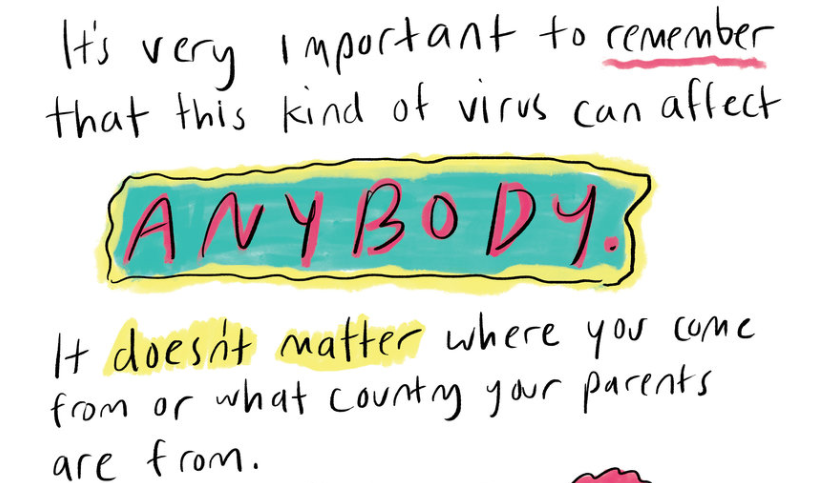 It's very important to remember
that this kind of virus can affect
ANYBODY.
It doesn't matter where you come
from or what country your parents
are from.